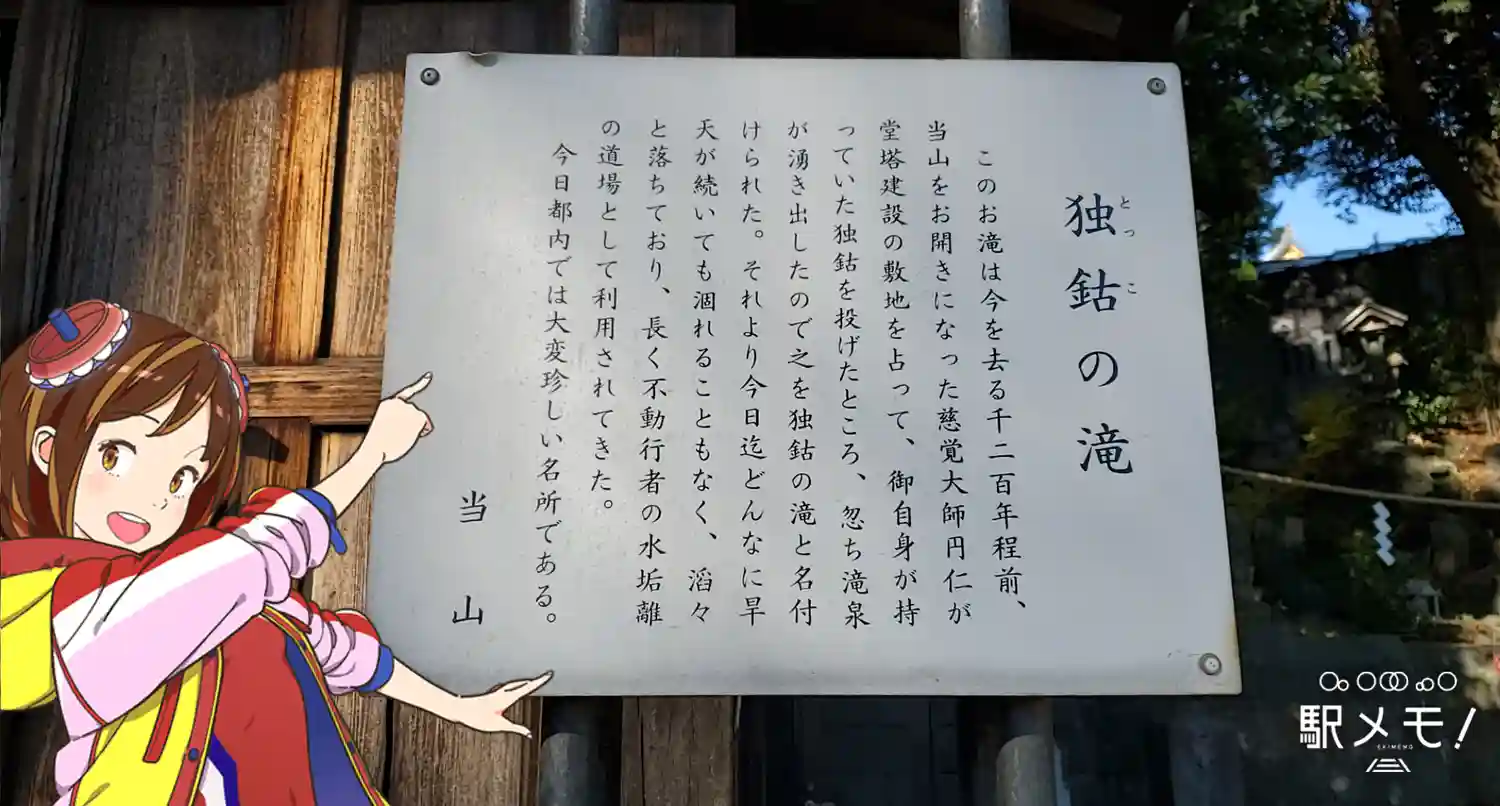 独鈷の滝
とっこ
このお滝は今を去る千二百年程前、
当山をお開きになった慈覚大師円仁が
堂塔建設の敷地を占って、御自身が持
っていた独鈷を投げたところ、忽ち滝泉
が湧き出したので之を独鈷の滝と名付
けられた。それより今日迄どんなに旱
天が続いても涸れることもなく、滔々
と落ちており、長く不動行者の水垢離
の道場として利用されてきた。
今日都内では大変珍しい名所である。
当山
駅メモ!
EKIMEMO